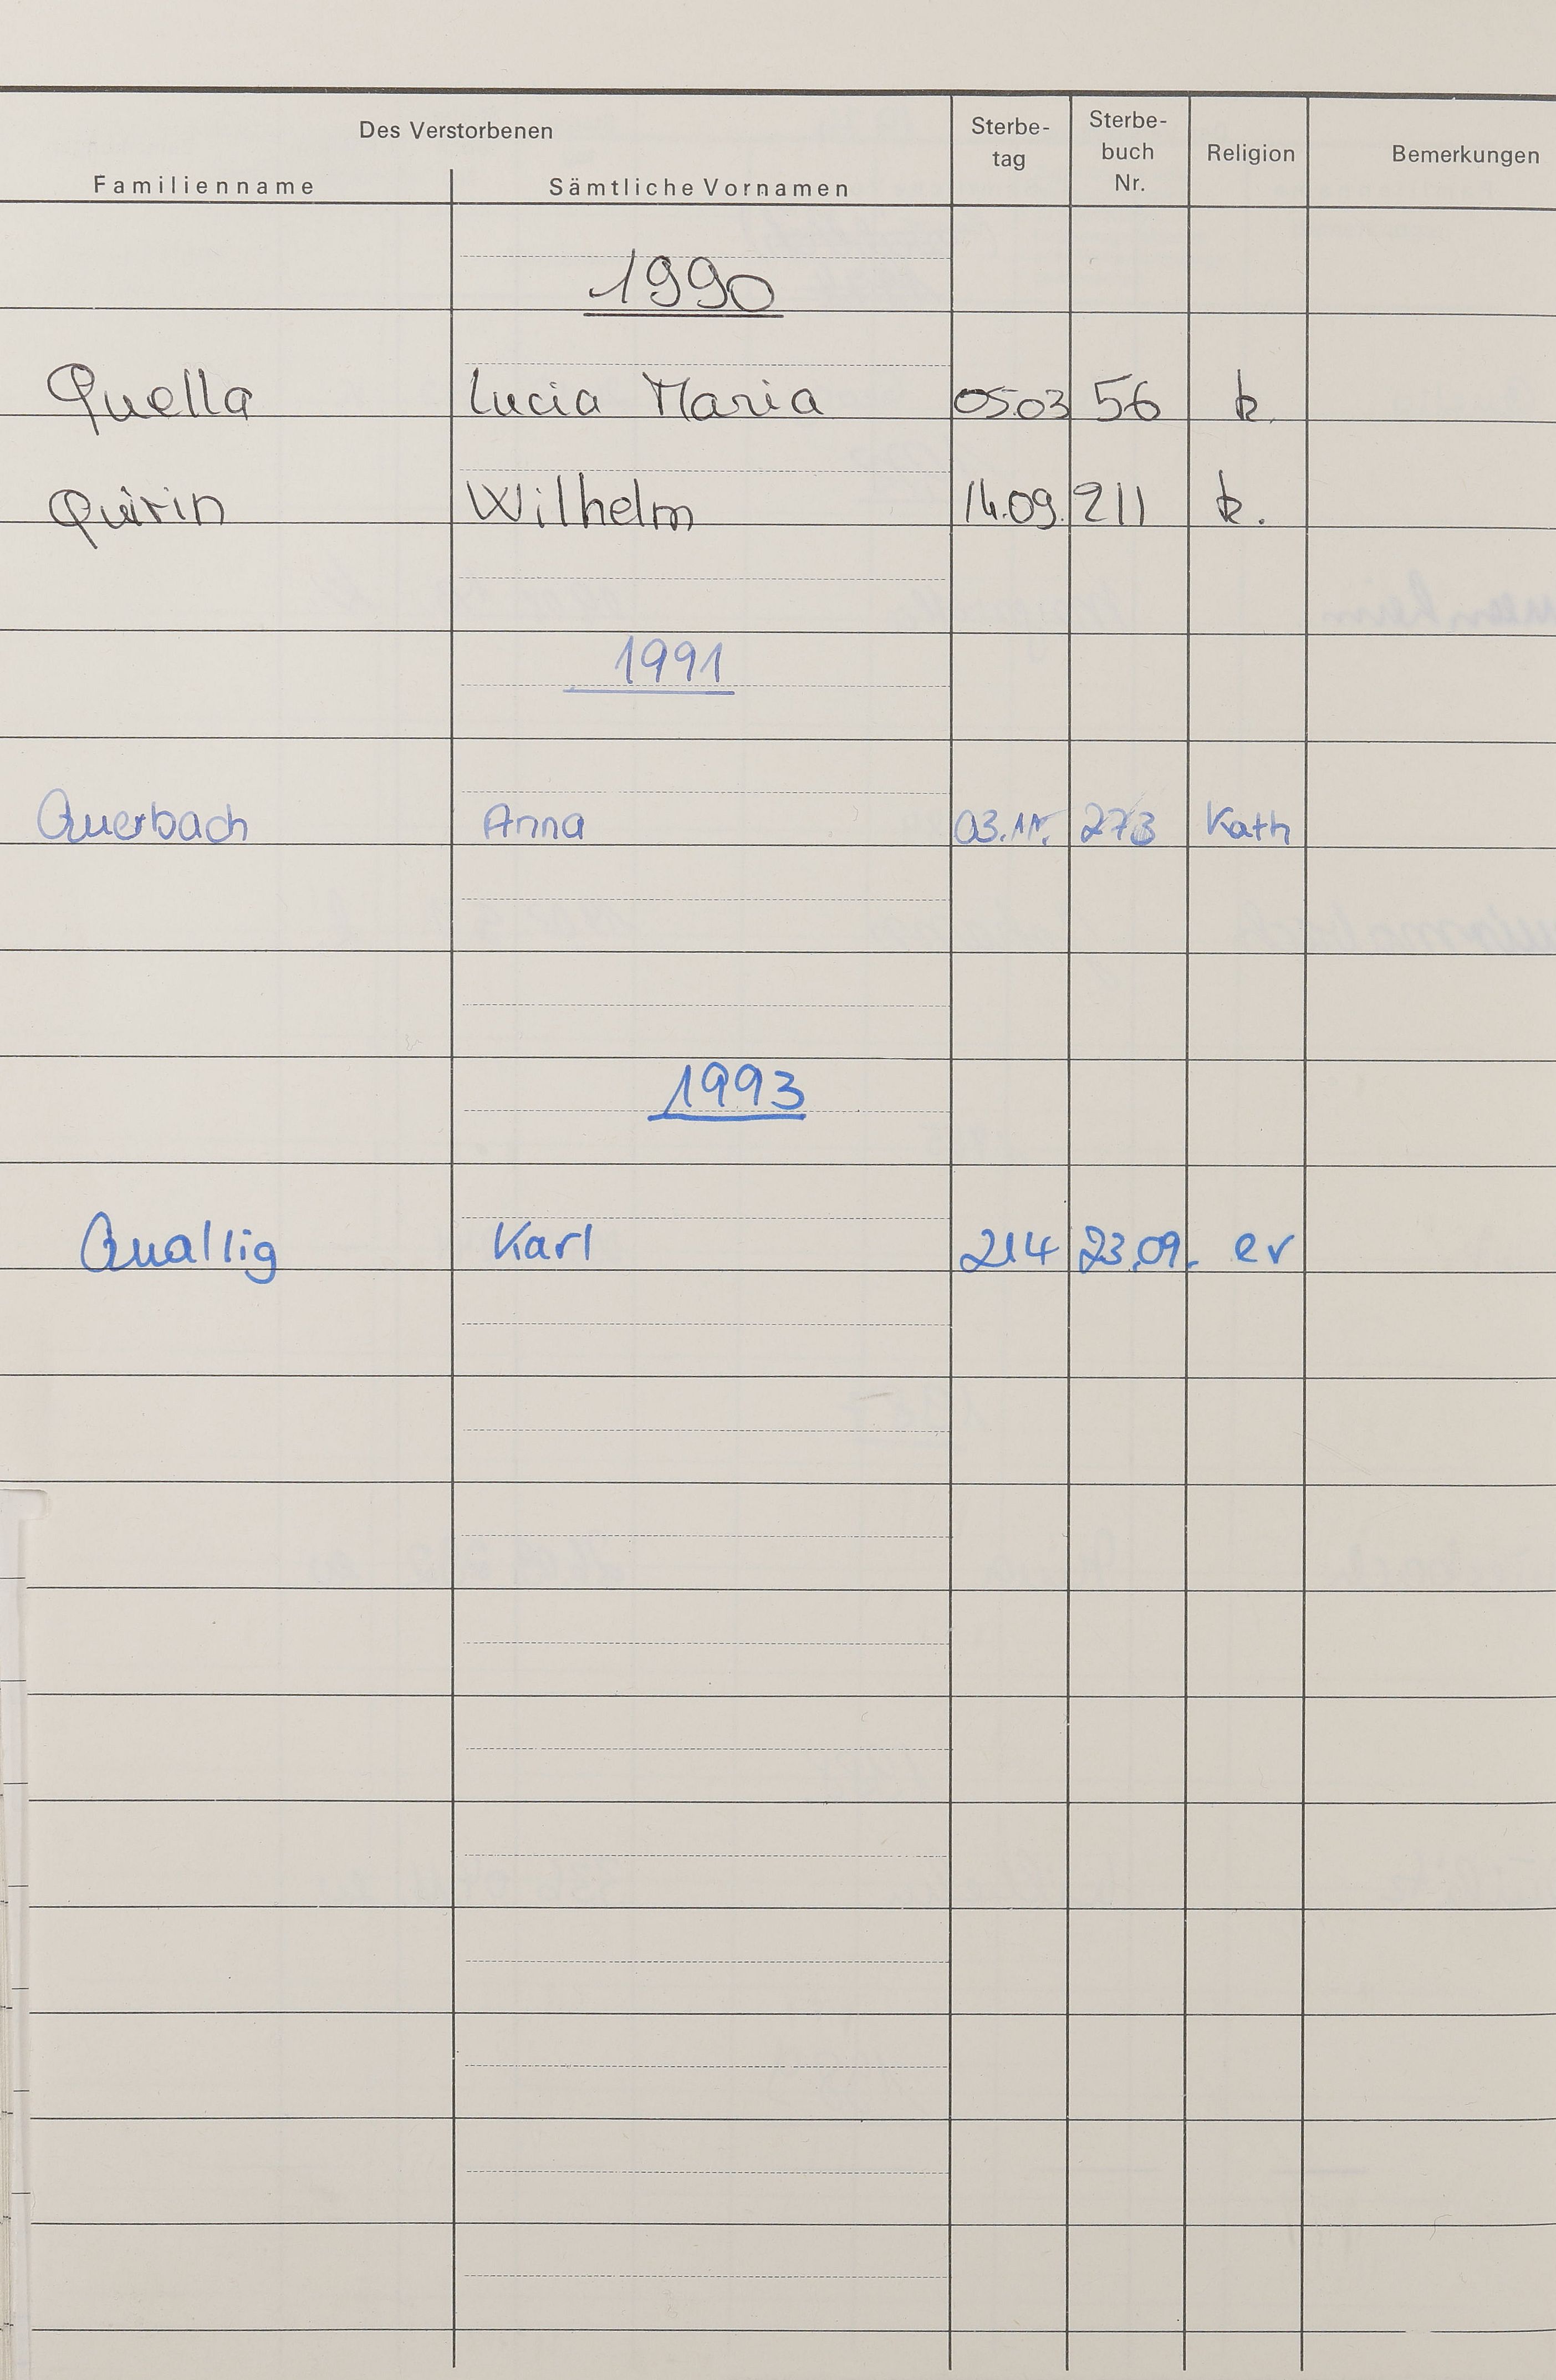 Des Verstorbenen
Familienname Sämtliche Vornamen Sterbe-tag Sterbe-buch Nr. Religion Bemerkungen
1990
Quella Lucia Maria 05.03 56 k.
Quirin Wilhelm 14.09. 211 k.
1991
Querbach Anna 03.11. 273 Kath
1993
Quallig Karl 214 23.09. ev